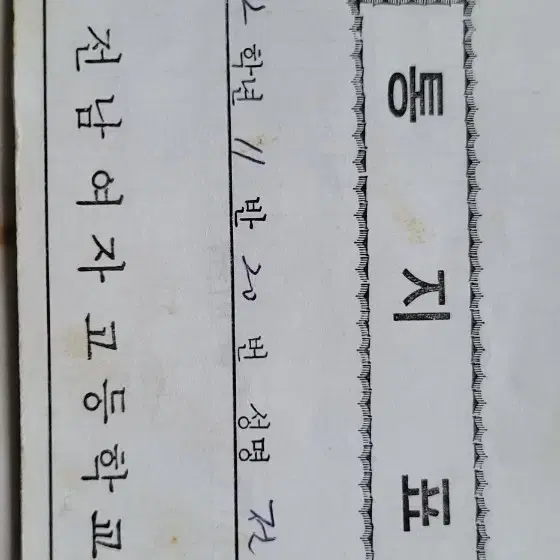 통지표
2 학년 11 반 20 번 성명 전
전남여자고등학교